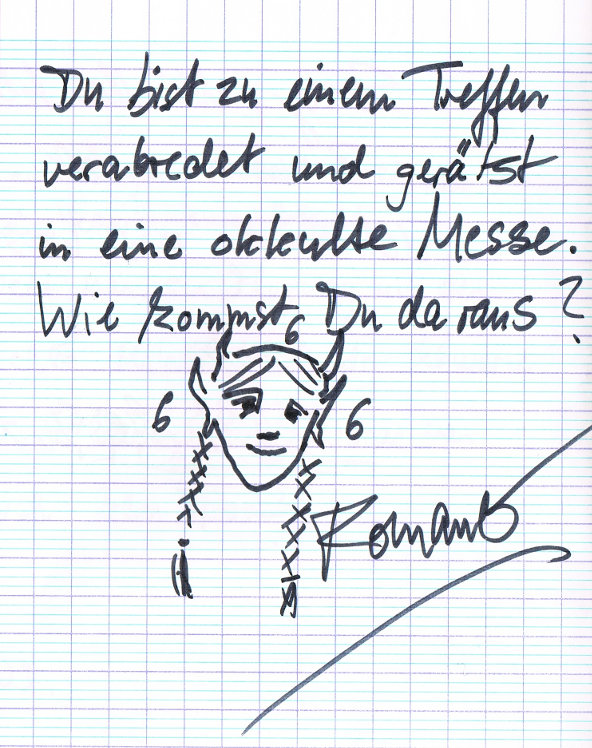 Du bist zu einem Treffen
verabredet und gerätst
in eine okkulte Messe.
Wie kommst Du da raus?
6
6 6